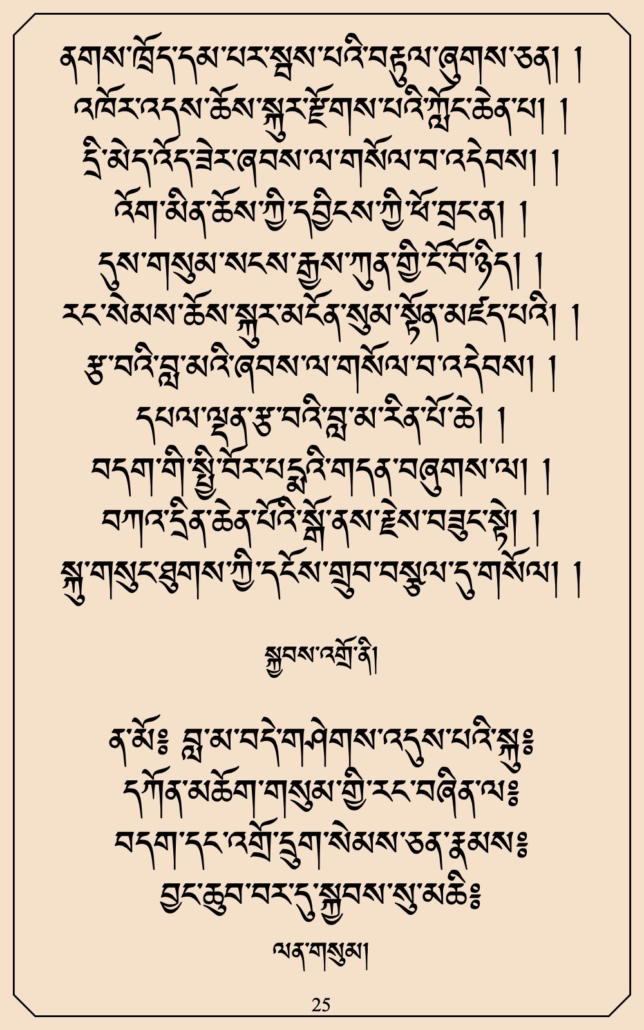 ནགས་ཁྲོད་དམ་པར་སྦས་པའི་བརྟུལ་ཞུགས་ཅན། །
འཁོར་འདས་ཆོས་སྐུར་རྫོགས་པའི་ཀློང་ཆེན་པ། །
དྲི་མེད་འོད་ཟེར་ཞབས་ལ་གསོལ་བ་འདེབས། །
འོག་མིན་ཆོས་ཀྱི་དབྱིངས་ཀྱི་ཕོ་བྲང་ན། །
དུས་གསུམ་སངས་རྒྱས་ཀུན་གྱི་ངོ་བོ་ཉིད། །
རང་སེམས་ཆོས་སྐུར་མངོན་སུམ་སྟོན་མཛད་པའི། །
རྩ་བའི་བླ་མའི་ཞབས་ལ་གསོལ་བ་འདེབས། །
དཔལ་ལྡན་རྩ་བའི་བླ་མ་རིན་པོ་ཆེ། །
བདག་གི་སྤྱི་བོར་པདྨའི་གདན་བཞུགས་ལ། །
བཀའ་དྲིན་ཆེན་པོའི་སྒོ་ནས་རྗེས་བཟུང་སྟེ། །
སྐུ་གསུང་ཐུགས་ཀྱི་དངོས་གྲུབ་བསྩལ་དུ་གསོལ། །
སྐྱབས་འགྲོ་ནི།
ན་མོ༔ བླ་མ་བདེ་གཤེགས་འདུས་པའི་སྐུ༔
དཀོན་མཆོག་གསུམ་གྱི་རང་བཞིན་ལ༔
བདག་དང་འགྲོ་དྲུག་སེམས་ཅན་རྣམས༔
བྱང་ཆུབ་བར་དུ་སྐྱབས་སུ་མཆི༔
ལན་གསུམ།
25